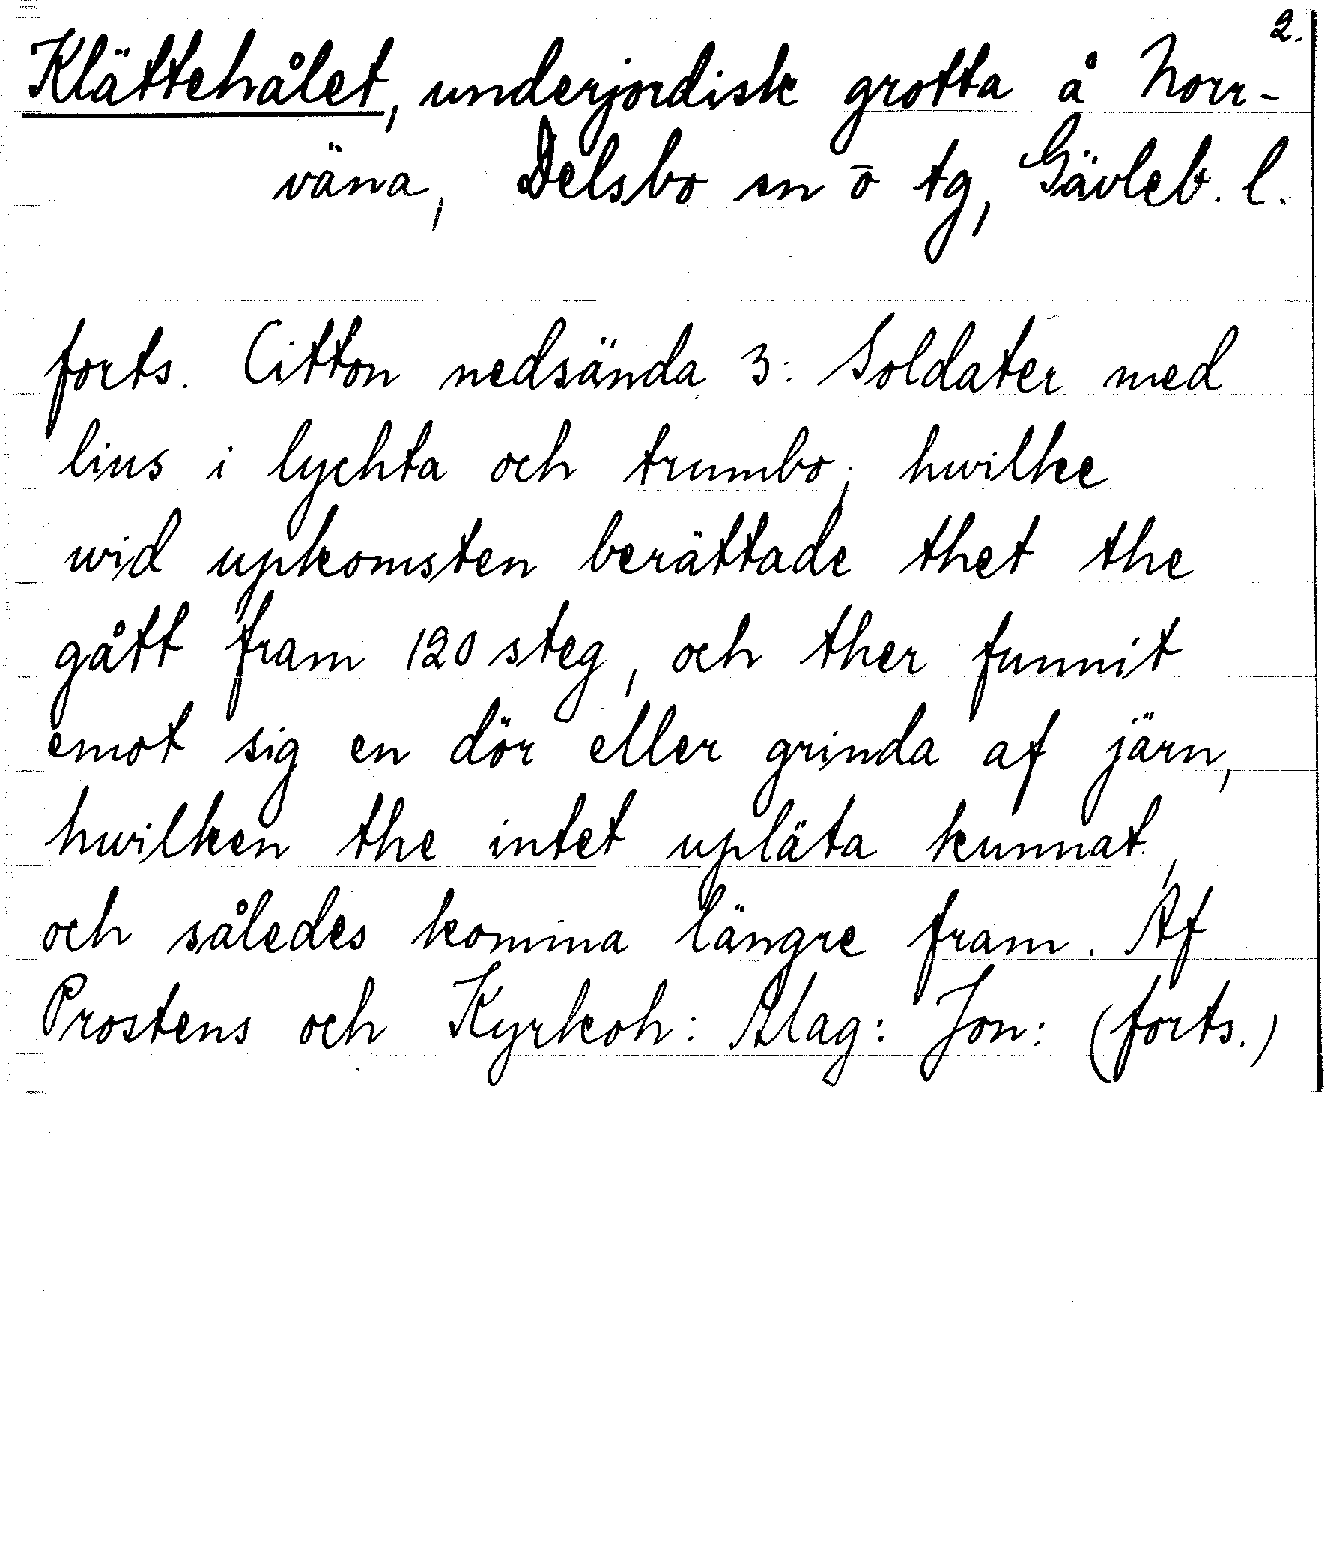 2.
Klättehålet, underjordisk grotta å Norr-
väna, Delsbo sn o tg, Gävleb. l.
forts. Citton nedsända 3: Soldater med
lius i lychta och trumbo; hwilke
wid upkomsten berättade thet the
gått fram 120 steg, och ther funnit
emot sig en dör eller grinda af järn,
hwilken the intet upläta kunnat,
och således komma längre fram. Af
Prostens och Kyrkoh: Mag: Jon: (forts.)